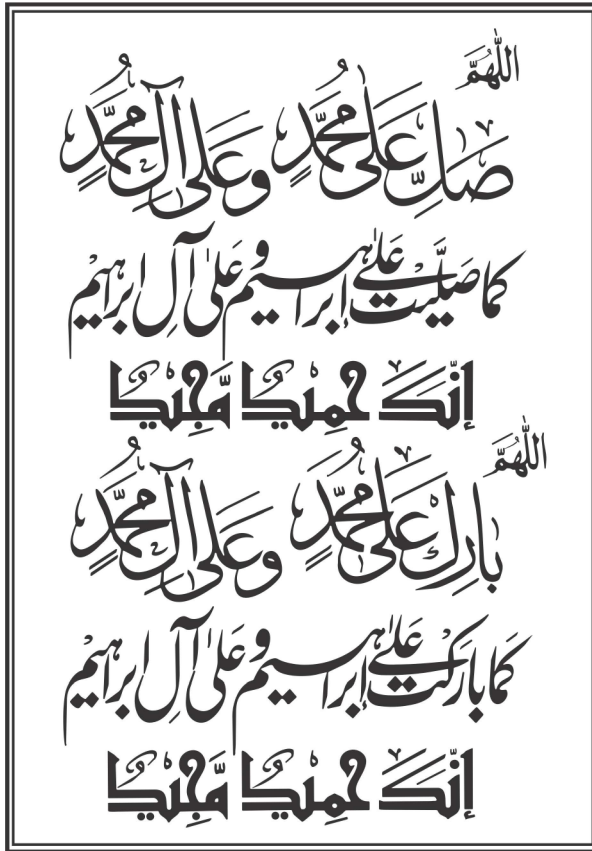 اللّٰهُمَّ
صَلِّ عَلٰى مُحَمَّدٍ وَعَلٰى آلِ مُحَمَّدٍ
كَمَا صَلَّيْتَ عَلٰى إِبْرَاهِيْمَ وَعَلٰى آلِ إِبْرَاهِيْمَ
إِنَّكَ حَمِيْدٌ مَّجِيْدٌ
اللّٰهُمَّ
بَارِكْ عَلٰى مُحَمَّدٍ وَعَلٰى آلِ مُحَمَّدٍ
كَمَا بَارَكْتَ عَلٰى إِبْرَاهِيْمَ وَعَلٰى آلِ إِبْرَاهِيْمَ
إِنَّكَ حَمِيْدٌ مَّجِيْدٌ